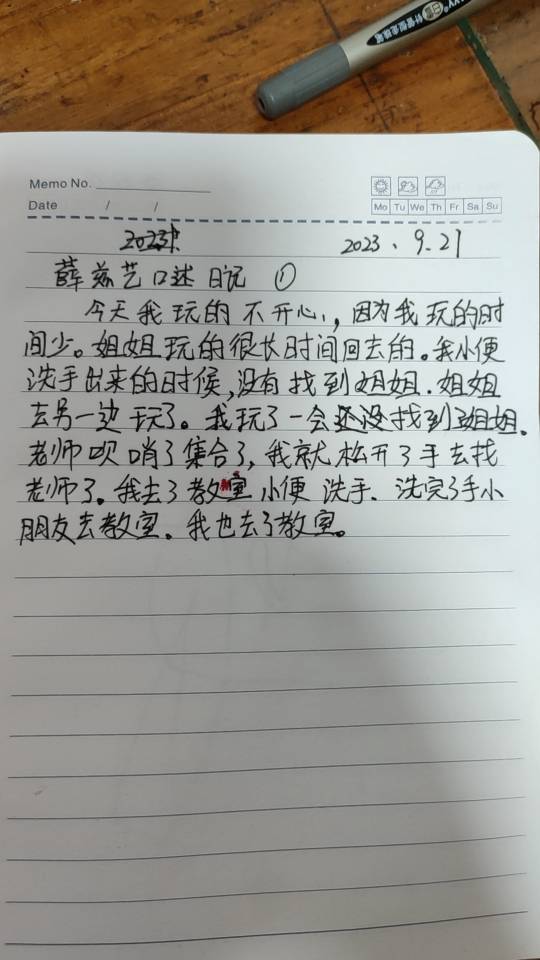 Memo No.
Date / /
Mo Tu We Th Fr Sa Su
2023 2023.9.21
薛兹艺口述日记 ①
今天我玩的不开心,因为我玩的时
间少。姐姐玩的很长时间回去的。我小便
洗手出来的时候,没有找到姐姐.姐姐
去另一边玩了。我玩了一会还没找到姐姐.
老师呗哨了集合了,我就松开了手去找
老师了。我去了教室小便洗手.洗完了手小
朋友去教室。我也去了教室。